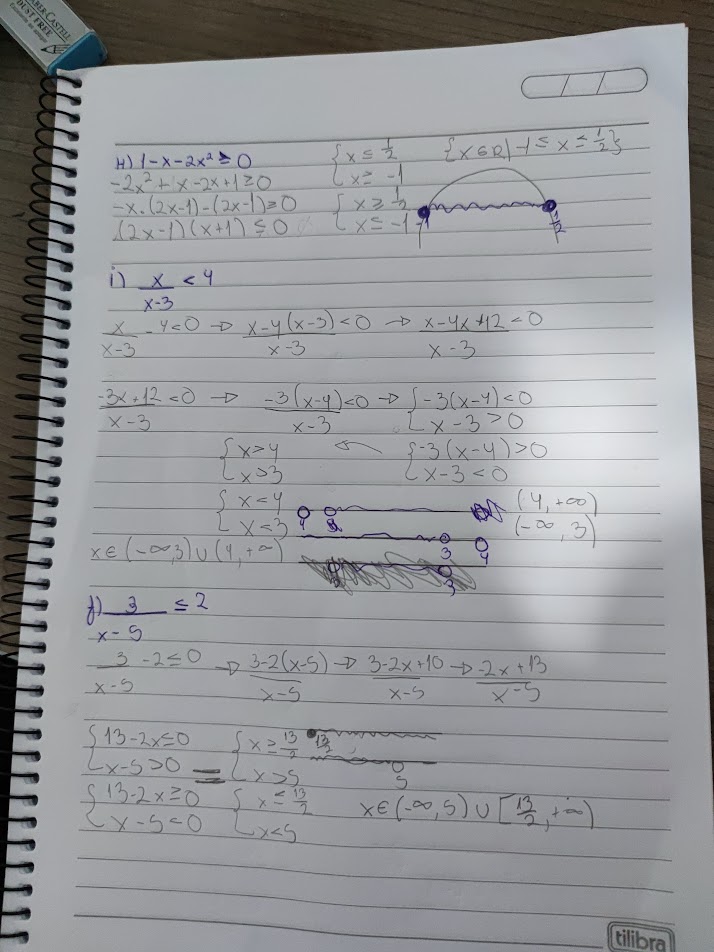 FABER-CASTELL
DUST FREE
H) 1-x-2x² ≥ 0 { x ≤ 1/2 {x∈R|-1 ≤ x ≤ 1/2}
-2x²+x-2x+1≥0 { x ≥ -1
-x·(2x-1)-(2x-1)≥0 { x ≥ 1/2
(2x-1)(x+1) ≤ 0 { x ≤ -1 -1 1/2
i) x/(x-3) < 4
x/(x-3) -4<0 → (x-4(x-3))/(x-3) <0 → (x-4x+12)/(x-3) <0
(-3x+12)/(x-3) <0 → (-3(x-4))/(x-3) <0 → { -3(x-4)<0
{ x-3>0
{ x>4 ← { -3(x-4)>0
{ x>3 { x-3<0
{ x<4 (4,+∞)
{ x<3 (-∞,3)
x∈(-∞,3)∪(4,+∞) 3 4
3
j) 3/(x-5) ≤ 2
3/(x-5) -2≤0 → (3-2(x-5))/(x-5) → (3-2x+10)/(x-5) → (-2x+13)/(x-5)
{ 13-2x≤0 { x ≥ 13/2 13/2
{ x-5>0 = { x>5 5
{ 13-2x≥0 { x ≤ 13/2 x∈(-∞,5)∪[13/2,+∞)
{ x-5<0 { x<5
tilibra